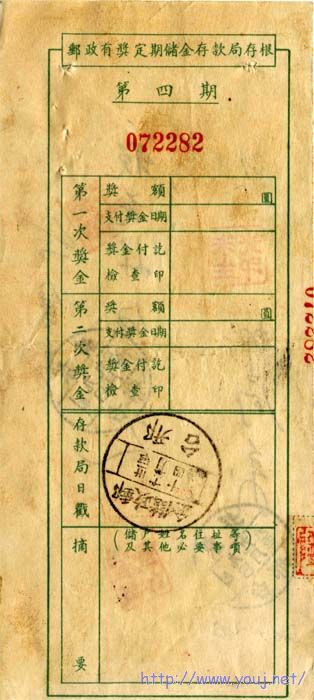 郵政有獎定期儲金存款局存根
第四期
072282
第一次獎金
獎額
圓
支付獎金日期
獎金付訖
檢查印
第二次獎金
獎額
圓
支付獎金日期
獎金付訖
檢查印
存款局日戳
摘要
(儲戶姓名住址等
及其他必要事項)
072282
http://www.youj.net/